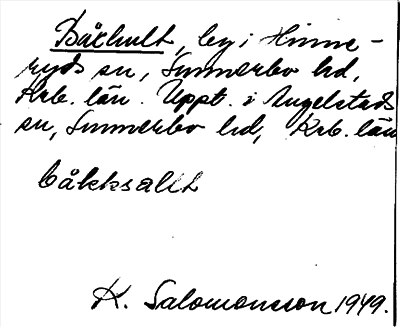 Båthult, by i Hinne-
ryds sn, Sunnerbo hd,
Krb. län. Uppt. i Angelstads
sn, Sunnerbo hd, Krb. län
K. Salomonsson 1949.